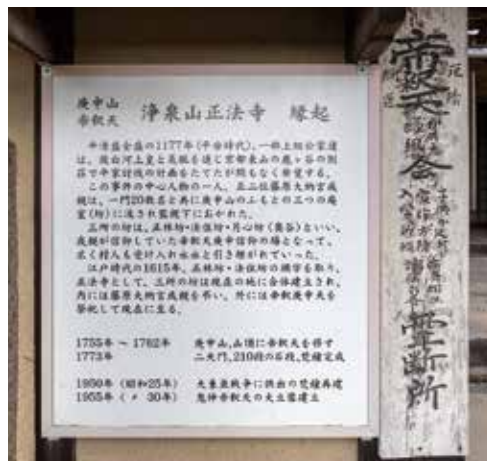 庚申山
帝釈天
浄泉山正法寺 縁起
平清盛全盛の1177年(平安時代)、一部上級公家達
は、後白河上皇と気脈を通じ京都東山の鹿ヶ谷の別
荘で平家討伐の計画をたてたが間もなく発覚する。
この事件の中心人物の一人、正二位藤原大納言成
親は、一門20数名と共に庚申山のふもとの三つの庵
室(坊)に流され監視下におかれた。
三所の坊は、正林坊・法伝坊・月心坊(奥谷)といい、
成親が信仰していた帝釈天庚申信仰の場となって、
広く村人も受け入れ永永と引き継がれていった。
江戸時代の1615年、正林坊・法伝坊の頭字を取り、
正法寺として、三所の坊は現在の地に合体建立され、
内には藤原大納言成親を弔い、外には帝釈庚申天を
祭祀して現在に至る。
1755年 ~ 1762年 庚申山,山頂に帝釈天を移す
1773年 二天門,210段の石段,梵鐘完成
1950年 (昭和25年) 大東亜戦争に供出の梵鐘再建
1955年 ( 〃 30年) 鬼神帝釈天の大立像建立
帝釈天
霊断所